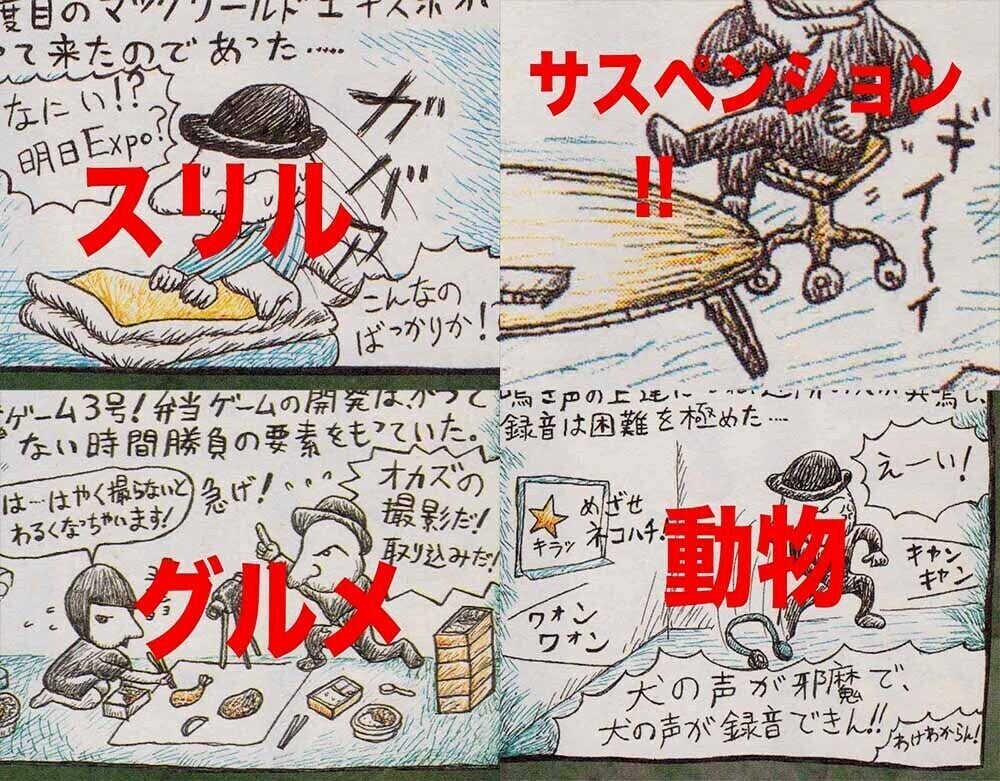 度目のマックワールドエキスポが
って来たのであった……
なにい!?
明日Expo?
ガバ
スリル
こんなの
ばっかりか!
サスペンション
!!
ギイ〜イ
ゲーム3号!弁当ゲームの開発は、かつて
ない時間勝負の要素をもっていた。
は…はやく撮らないと
わるくなっちゃいます!
急げ!
オカズの
撮影だ!
取り込みだ!
グルメ
鳴き声の上達に
録音は困難を極めた…
えーい!
めざせ
ネコハチ!
キラッ
動物
キャン
キャン
ワォン
ワォン
犬の声が邪魔で、
犬の声が録音できん!!
わけわからん!